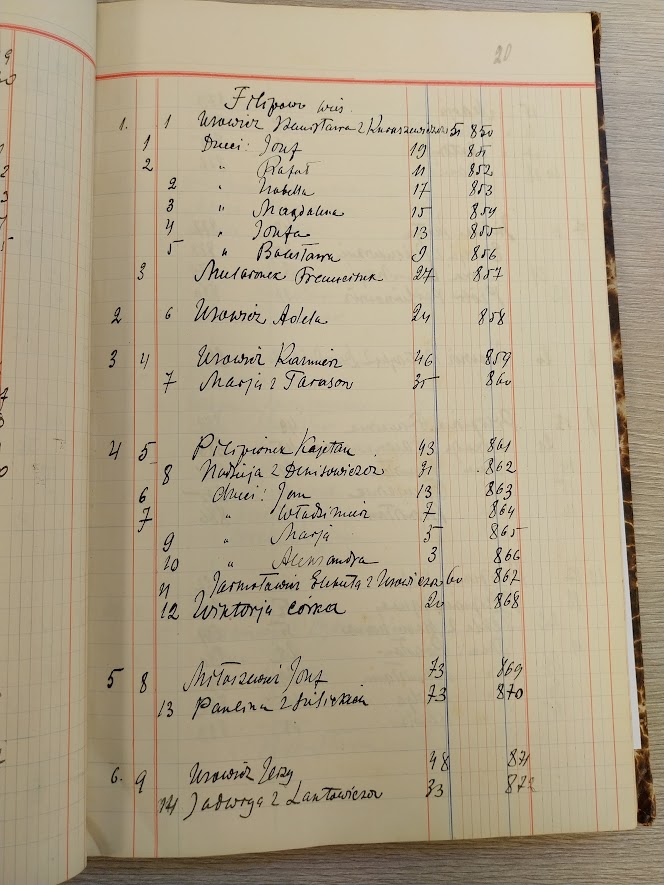 20
Filipowo wieś
1. 1 Usowicz z 51 850
1 Dzieci: Józef 19 851
2 " Rafał 11 852
2 " Izabella 17 853
3 " Magdalena 15 854
4 " Józefa 13 855
5 " 9 856
3 27 857
2 6 Usowicz Adela 24 858
3 4 Usowicz Kazimierz 46 859
7 Marja z Tarason 35 860
4 5 Pilipionek Kajetan 43 861
8 Nadzieja z Denisowiczów 31 862
6 dzieci: Jan 13 863
7 " Władzimierz 7 864
9 " Marja 5 865
10 " Aleksandra 3 866
11 Elżbieta z Usowiczów 60 867
12 Wiktorja córka 20 868
5 8 Miłaszewicz Józef 73 869
13 Paulina z 73 870
6. 9 Usowicz Jerzy 48 871
14 Jadwiga z Lantowiczów 33 872